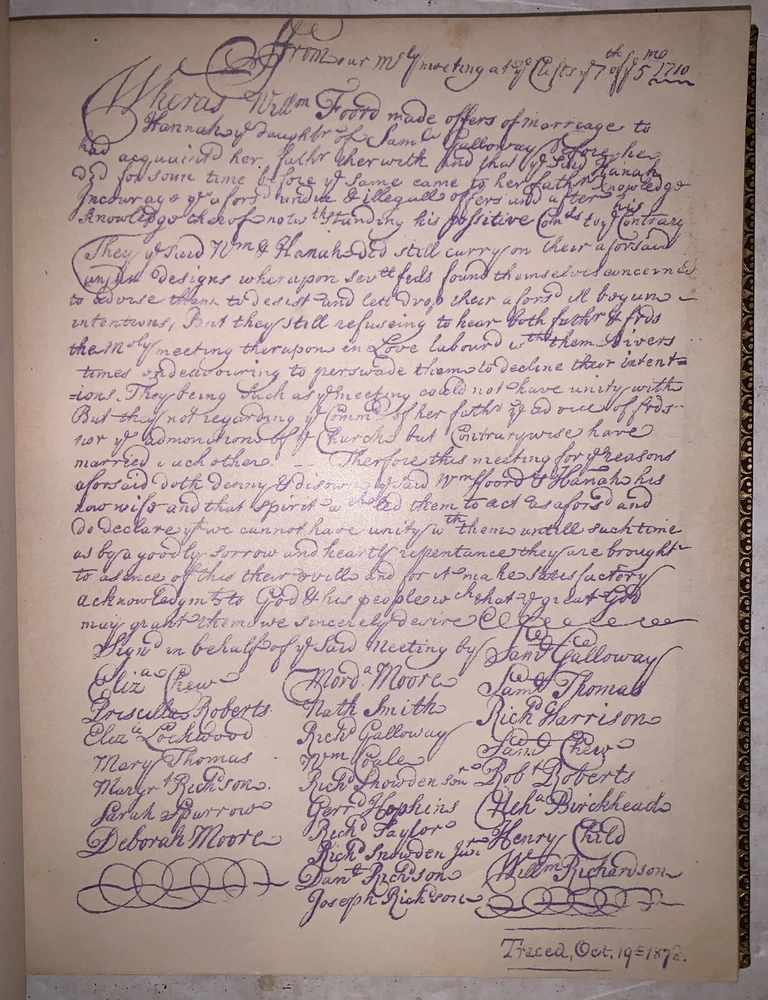 From our Mоly meeting at ye Clifts ye 7th of ye 5mo 1710
Wheras Willm Foord made offers of marreage to
Hannah ye daughtr of Saml Galloway before he
had acquaintd her fathr therwith and that ye said Hanah
did for some time before ye same came to her fathrs knowledge
Incourage ye aforsd undue & illegall offers and after his
knowledge therof notwthstanding his positive Comds to ye Contrary
They ye said Wm & Hanah did still carry on their aforsaid
unjust designs wherupon sevll frds found themselves concernd
to advise them to desist and lett drop their aforsd ill begun
intentions, But they still refuseing to hear both fathr & frds
the Moly meeting therupon in Love labourd wth them Divers
times endeavouring to perswade them to decline their intent=
=ions. They being Such as ye meeting could not have unity with
But they not regarding ye Commd of her fathr ye advice of frds
nor ye admonitions of ye Church but Contrarywise have
married each other. — Therfore this meeting for ye reasons
aforsaid doth denny & disown ye said Wm ffoord & Hanah his
now wife and that spirit wch led them to act as aforsd and
do declare yt we cannot have unity wth them untill such time
as by a goodly sorrow and hearty repentance they are brought
to a sence of this their evill and for it make satisfactory
acknowledgmts to God & his people wch that ye great God
may grant them we sincerely desire
Signd in behalf of ye Said Meeting by Saml Galloway
Eliza Chew Morda Moore Saml Thomas
Priscilla Roberts Nath Smith Richd Harrison
Eliza Lockwood Richd Galloway Saml Chew
Mary Thomas Wm Coale Robt Roberts
Margrt Richson. Richd Snowden senr Neha Birckhead
Sarah Sparrow Gerrd Hopkins Henry Child
Deborah Moore Richd Taylor Willm Richardson
Richd Snowden Junr
Danl Richson
Joseph Richson
Traced, Oct. 19th 1878.